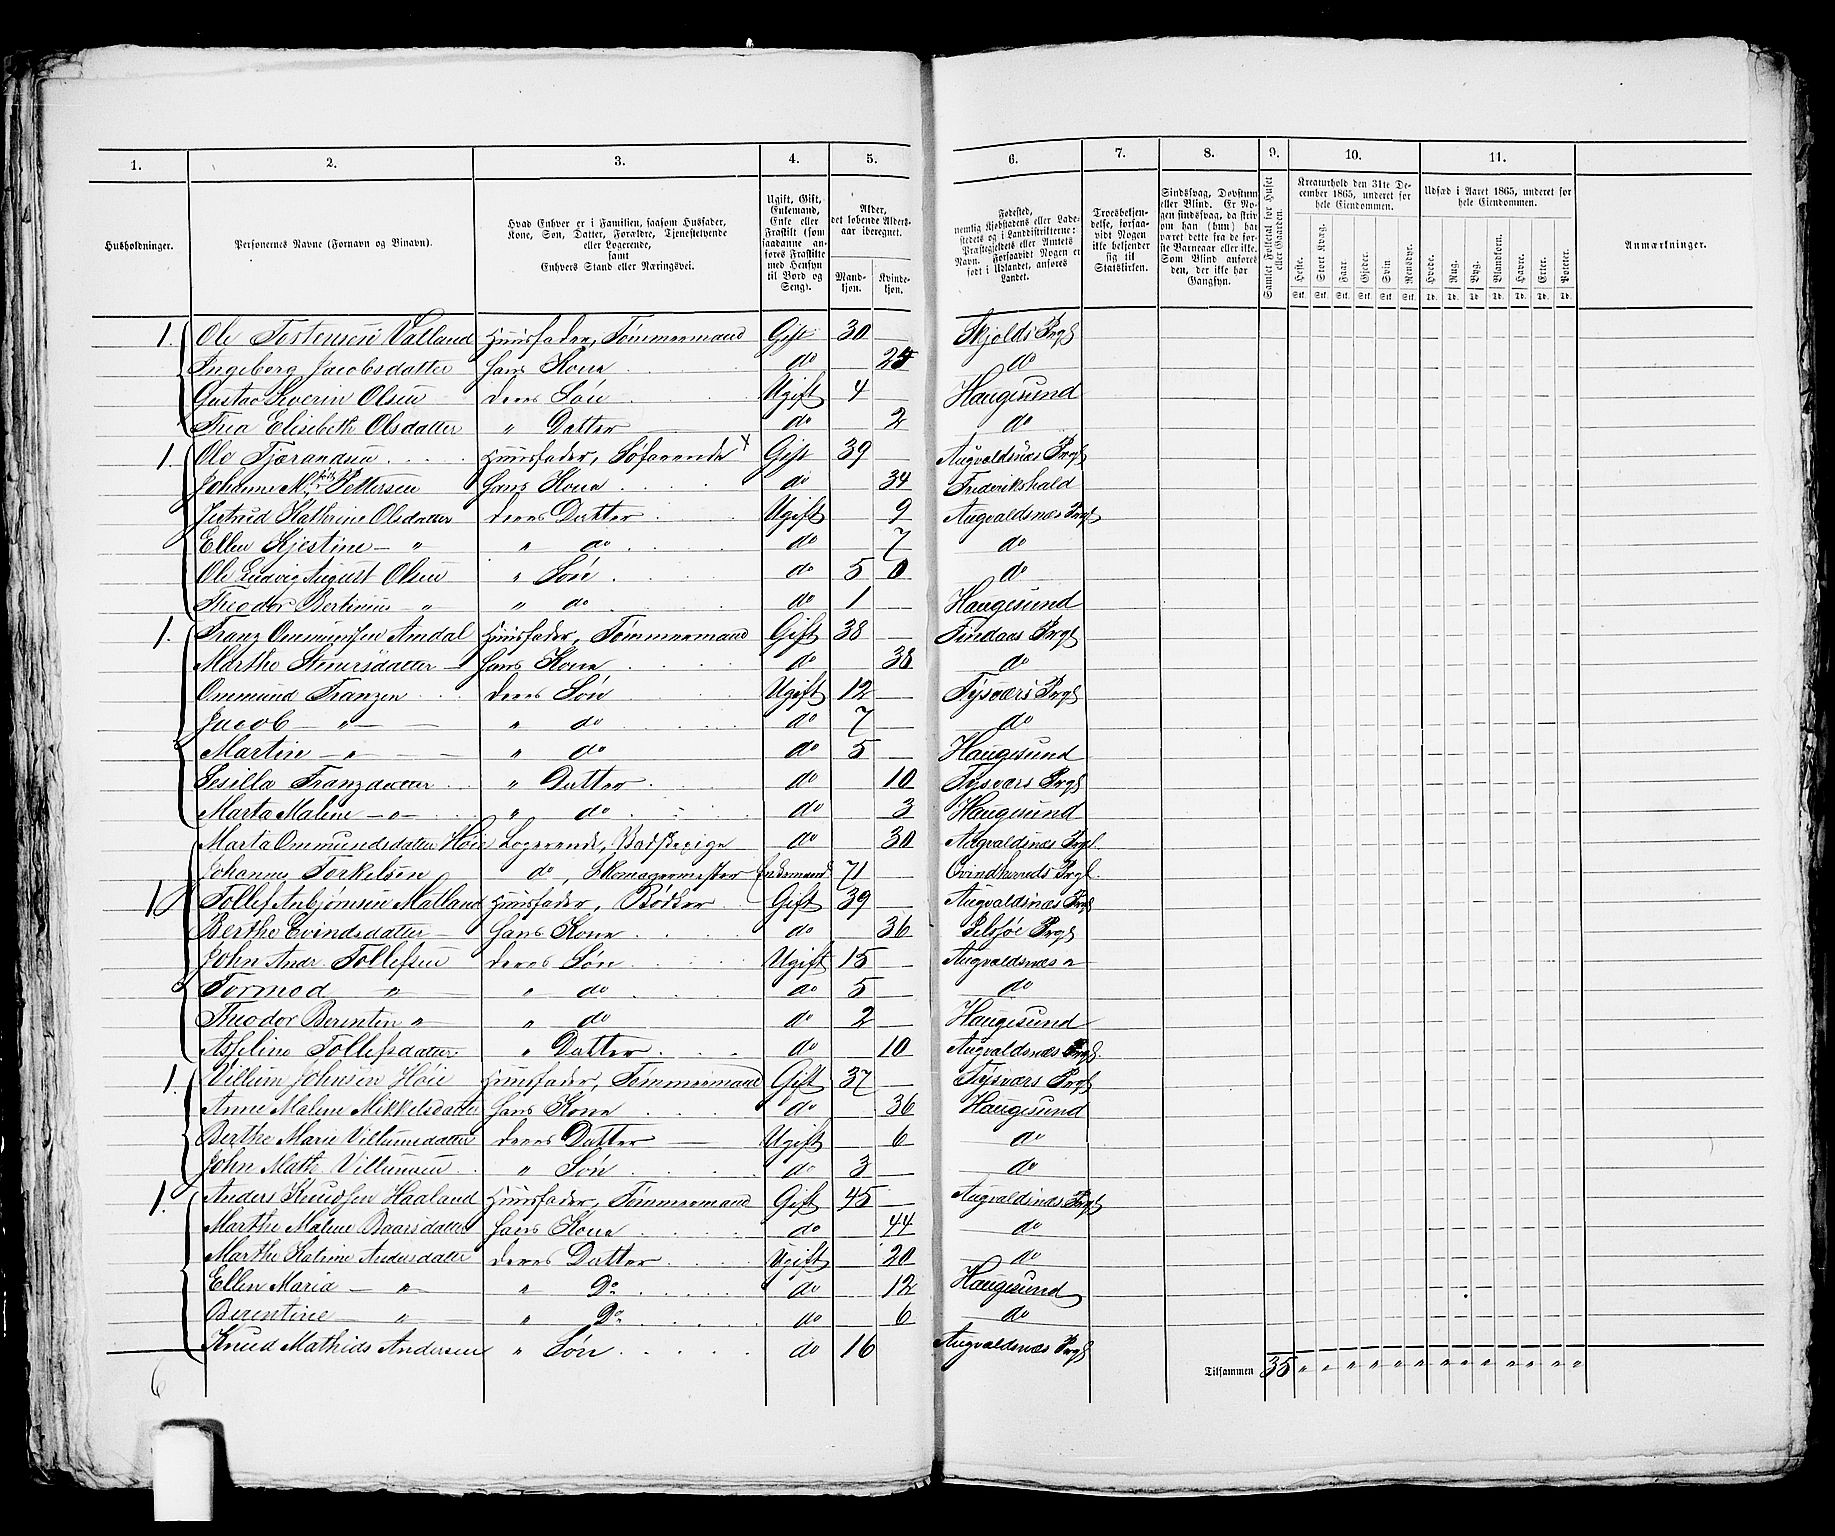 1. 2. 3. 4. 5. 6. 7. 8. 9. 10. 11.
Husholdninger.
Personernes Navne (Fornavn og Binavn).
Hvad Enhver er i Familien, saasom Husfader, Kone, Søn, Datter, Forældre, Tjenestetyende eller Logerende, samt Enhvers Stand eller Næringsvei.
Ugift, Gift, Enkemand, Enke eller Fraskilt (som saadanne anføres Fraskilte med Hensyn til Bord og Seng).
Alder, det løbende Aldersaar iberegnet.
Mandkjøn. Kvindekjøn.
Fødested, nemlig Kjøbstadens eller Ladestedets og i Landdistrikterne: Præstegjeldets eller Amtets Navn. Forsaavidt Nogen er født i Udlandet, anføres Landet.
Troesbekjendelse, forsaavidt Nogen ikke bekjender sig til Statskirken.
Sindssvag, Døvstum eller Blind. Er Nogen sindssvag, da skrives om han (hun) har været dette fra de første Barneaar eller ikke. Som Blind anføres den, der ikke har Gangsyn.
Samlet Folketal for Huset eller Gaarden.
Kreaturhold den 31te December 1865, underet for hele Eiendommen.
Heste. Stort Kvæg. Faar. Gjeder. Svin Rensdyr.
Stk. Stk. Stk. Stk. Stk. Stk.
Udsæd i Aaret 1865, underet for hele Eiendommen.
Hvede. Rug. Byg. Blandkorn. Havre. Erter. Poteter.
Td. Td. Td. Td. Td. Td. Td.
Anmærkninger.
1. Ole Tostensen Valland Huusfader, Tømmermand Gift 30 Skjolds Prgl
Ingeborg Jacobsdatter hans Kone do 25 do
Gustav Severin Olsen deres Søn Ugift 4 Haugesund
Thea Elisebeth Olsdatter " Datter do 2 do
1. Ole Tjerandsen Huusfader, Søfarende x Gift 39 Augvaldsnæs Prgl
Johanne M. Pettersen hans Kone do 34 Frederikshald
Jertrud Kathrine Olsdatter deres Datter Ugift 9 Augvaldsnæs Prgl
Ellen Kjestine — " " do do 7 do
Ole Ludvig August Olsen " Søn do 5 0 do
Theodor Bertinius — " " do do 1 Haugesund
1. Franz Ommundsen Amdal Huusfader, Tømmermand Gift 38 Findaas Prgl
Marthe Sjursdatter hans Kone do 38 do
Ommund Franzen deres Søn Ugift 12 Tysværs Prgl
Jacob — " — " do do 7 do
Martin — " — " do do 5 Haugesund
Sesilla Franzdatter " Datter do 10 Tysværs Prgl
Marta Malene — " — " do do 3 Haugesund
Marta Ommundsdatter Høie Logerende, do 30 Augvaldsnæs Prgl.
Johannes Torkelsen do, Skomagermester Enkemand 71 Qvindherreds Prgl
1 Tollef Asbjørnsen Matland Huusfader, Bødker Gift 39 Augvaldsnæs Prgl
Berthe Evindsdatter hans Kone do 36 Prgl
John Andr. Tollefsen deres Søn Ugift 15 Augvaldsnæs "
Tormod " " do do 5 do
Theodor Berenten " " do do 2 Haugesund
Asseline Tollefsdatter " Datter do 10 Augvaldsnæs Prgl.
1. Villum Johnsen Høie Huusfader, Tømmermand Gift 37 Tysværs Prgl
Anne Malene Mikkelsdatter hans Kone do 36 Haugesund
Berthe Marie Villumsdatter deres Datter Ugift 6 do
John Math. Villumsen " Søn do 3 do
1. Anders Knudsen Haaland Huusfader, Tømmermand Gift 45 Augvaldsnæs Prgl
Marthe Malene Baarsdatter hans Kone do 44 do
Marthe Kaline Andersdatter deres Datter Ugift 20 do
Ellen Maria — " — " Do do 12 Haugesund
Berentine " " Do do 6 do
Knud Mathias Andersen " Søn do 16 Augvaldsnæs Prgl
6
Tilsammen 35 " " " " " " " " " " " " "